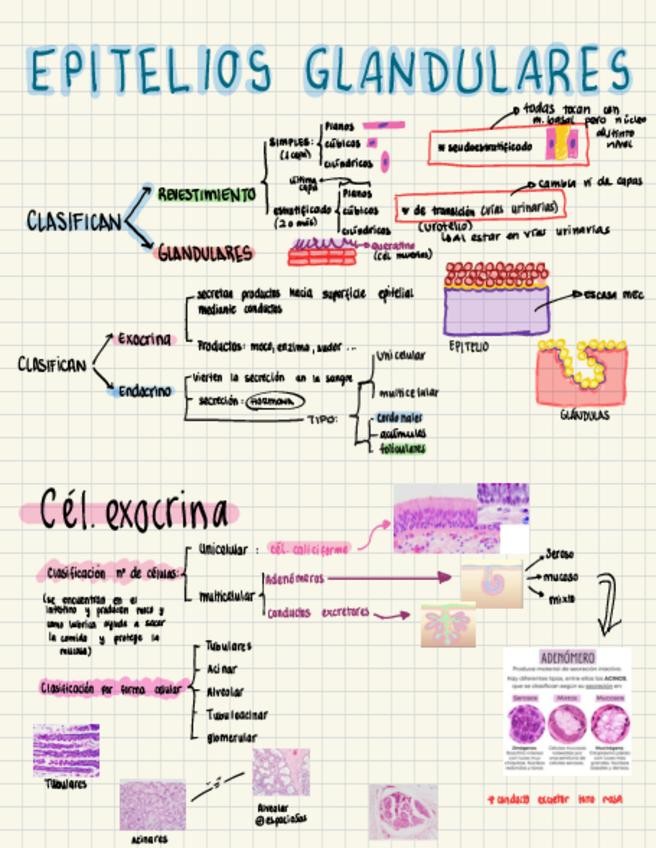 EPITELIOS GLANDULARES
todas tocan con
m. basal pero núcleo
distinto
nivel
* seudoestratificado
SIMPLES:
(1 capa)
Planos
cúbicos
cilíndricos
última
capa
estratificado
(2 o más)
Planos
cúbicos
cilíndricos
cambia nº de capas
* de transición (vías urinarias)
(urotelio)
al estar en vías urinarias
queratina
(cél muertas)
CLASIFICAN
REVESTIMIENTO
GLANDULARES
escasa MEC
EPITELIO
GLÁNDULAS
CLASIFICAN
Exocrina
secretan productos hacia superficie epitelial
mediante conductos
Productos: moco, enzima, sudor ...
Endocrino
vierten la secreción en la sangre
secreción: HORMONA
TIPO:
Unicelular
multicelular
- cordonales
- acúmulos
- foliculares
Cél. exocrina
Clasificación nº de células:
Unicelular : cél. caliciforme
multicelular
Adenómeros
conductos excretores
Seroso
mucoso
mixto
(se encuentran en el
intestino y producen moco y
como lubrica ayuda a sacar
la comida y protege la
mucosa)
Clasificación por forma celular
Tubulares
Acinar
Alveolar
Tubuloacinar
glomerular
ADENÓMERO
Produce material de secreción inactivo.
Hay diferentes tipos, entre ellos los ACINOS,
que se clasifican según su secreción en:
Serosos
Mixtos
Mucosos
Tubulares
Acinares
Alveolar
espaciosas
+ conducto excretor